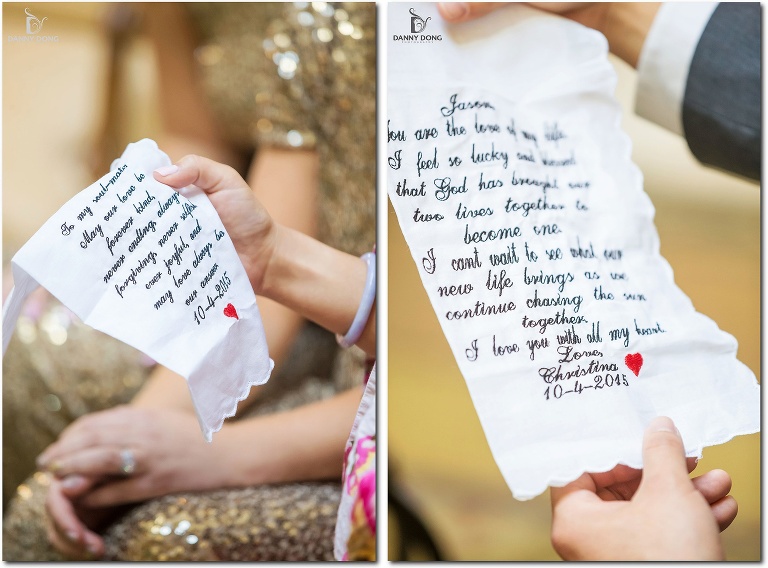 DANNY DONG
PHOTOGRAPHY
To my soul-mate
May our love be
forever kind,
never ending always
forgiving never selfish
ever joyful, and
may love always be
our answer
10-4-2015
DANNY DONG
PHOTOGRAPHY
Jason,
You are the love of my life.
I feel so lucky and blessed
that God has brought our
two lives together to
become one.
I cant wait to see what our
new life brings as we
continue chasing the sun
together.
I love you with all my heart.
Love,
Christina
10-4-2015